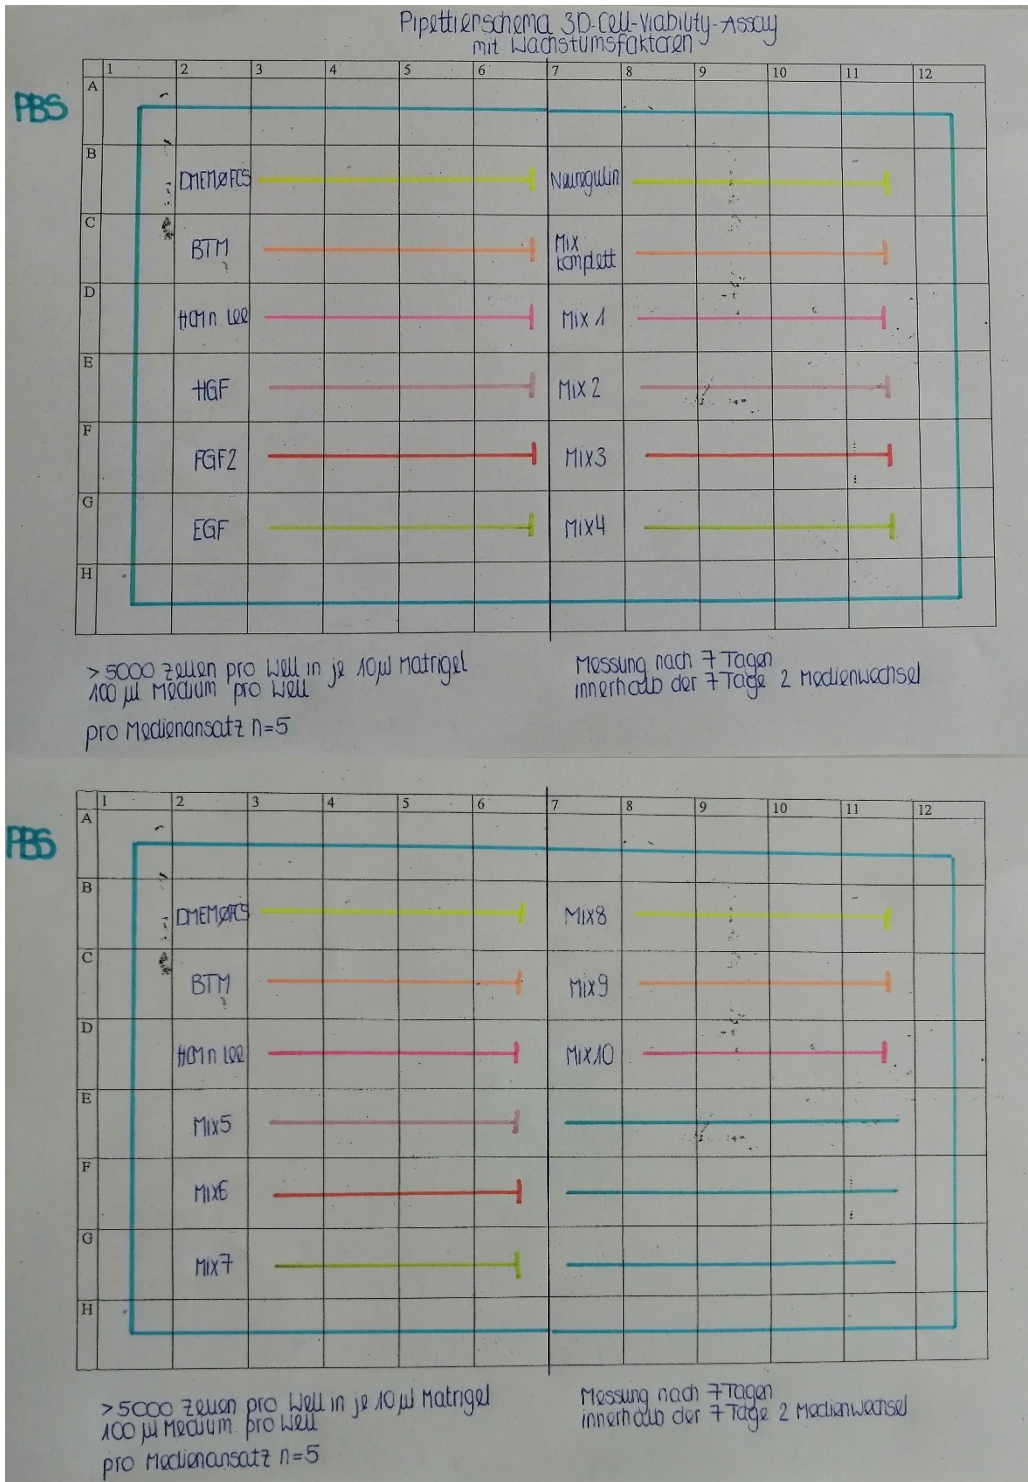 Pipettierschema 3D-Cell-Viability-Assay
mit Wachstumsfaktoren
1 2 3 4 5 6 7 8 9 10 11 12
A
PBS
B DMEMØFCS Neuregulin
C BTM Mix
komplett
D HCM n. Lee Mix 1
E HGF Mix 2
F FGF2 Mix3
G EGF Mix4
H
>5000 Zellen pro Well in je 10µl Matrigel
100 µl Medium pro Well
pro Medienansatz n=5
Messung nach 7 Tagen
innerhalb der 7 Tage 2 Medienwechsel
1 2 3 4 5 6 7 8 9 10 11 12
A
PBS
B DMEMØFCS Mix8
C BTM Mix9
D HCM n. Lee Mix10
E Mix5
F Mix6
G Mix7
H
>5000 Zellen pro Well in je 10 µl Matrigel
100 µl Medium pro Well
pro Medienansatz n=5
Messung nach 7 Tagen
innerhalb der 7 Tage 2 Medienwechsel